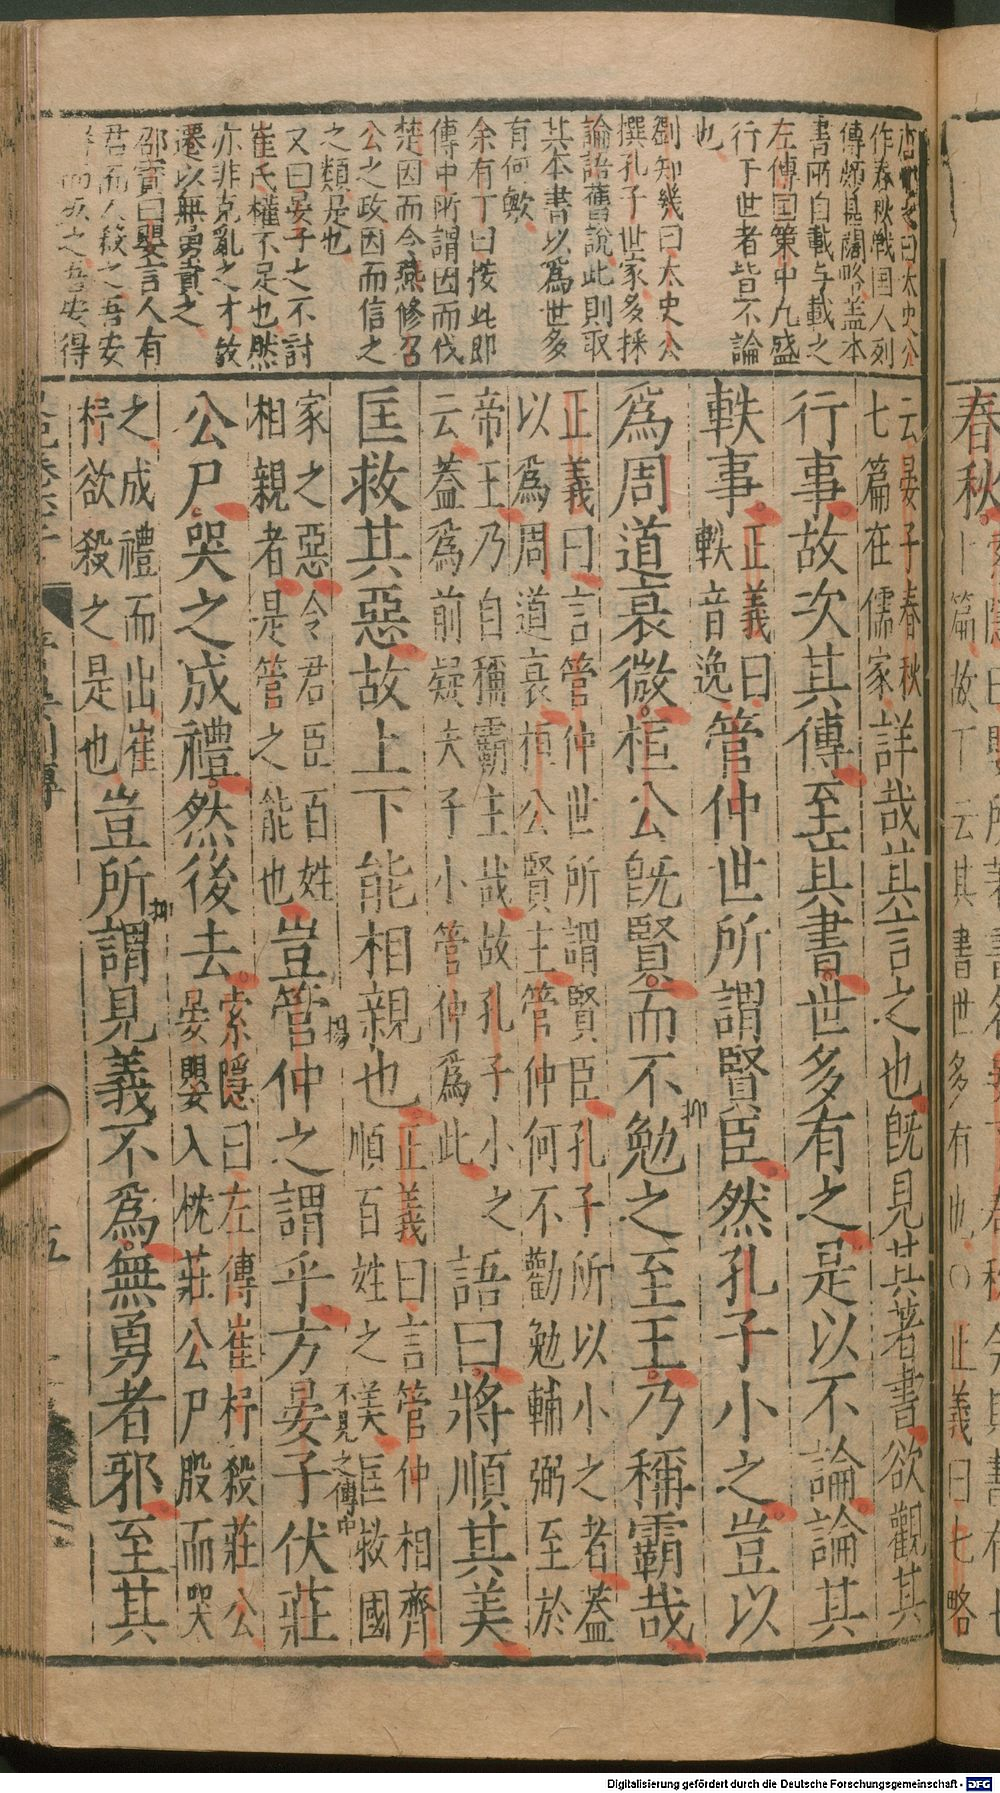 作春秋戰国人列
傳郷甚闊略盖本
書所自載与載之
左傳国策中九盛
行于世者皆不論
也
劉知幾曰太史公
撰孔子世家多採
論語舊說此則取
其本書以為世多
有何歟
余有丁曰按此即
傳中所謂因而伐
楚因而令燕修召
公之政因而信之
之類是也
又曰晏子之不討
崔氏權不足也然
亦非克亂之才故
遷以無勇責之
邵寶曰嬰言人有
君而人殺之吾安
得
春秋
七篇故下云其書世多有也○正義曰七略
云晏子春秋
七篇在儒家
詳哉其言之也既見其著書欲觀其
行事故次其傳至其書世多有之是以不論論其
軼事
正義曰
軼音逸
管仲世所謂賢臣然孔子小之豈以
為周道衰微桓公既賢而不勉之至王乃稱霸哉
正義曰言管仲世所謂賢臣孔子所以小之者蓋
以為周道衰桓公賢主管仲何不勸勉輔弼至於
帝王乃自稱霸主哉故孔子小之
云蓋為前疑夫子小管仲為此
語曰將順其美
匡救其惡故上下能相親也
正義曰言管仲相齊
順百姓之美匡救國
家之惡令君臣百姓
相親者是管之能也
豈管仲之謂乎方晏子伏莊
公尸哭之成禮然後去
索隱曰左傳崔杼殺莊公
晏嬰入枕莊公尸股而哭
之成禮而出崔
杼欲殺之是也
豈所謂見義不為無勇者邪至其
抑
抑
揚
不見之傳中
五
Digitalisierung gefördert durch die Deutsche Forschungsgemeinschaft - DFG